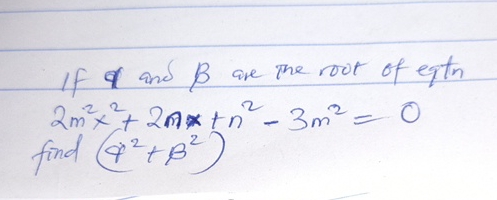 If α and β are the root of eqtn
2m²x² + 2nx + n² - 3m² = 0
find (α² + β²)